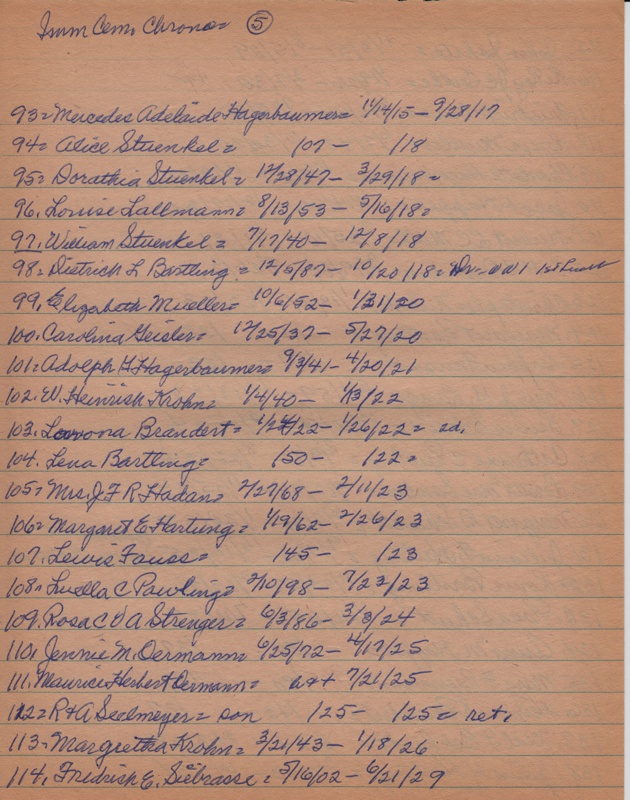 Imm Cem. Chrono= 5
93= Mercedes Adelaide Hagerbaumer= 11/14/15 - 9/28/17
94= Alice Stuenkel= /07 - /18
95= Dorathia Stuenkel= 12/28/47 - 3/29/18=
96. Louise Lallmann= 8/13/53 - 5/16/18=
97. William Stuenkel= 7/17/40 - 12/8/18
98= Dietrich L Bartling= 12/5/87 - 10/20/18= WW1 1st
99. Elizabeth Mueller= 10/6/52 - 1/31/20
100. Carolina Geisler= 12/25/37 - 5/27/20
101= Adolph H Hagerbaumer= 9/3/41 - 4/20/21
102. W. Heinrich Krohn= 1/4/40 - 1/13/22
103. Brandert= - 1/26/22= 2d.
104. Lena Bartling= /50 - /22=
105= Mrs. J F R Hadan= 2/27/68 - 2/11/23
106= Margaret E Hartung= 1/19/62 - 2/26/23
107. Lewis Fauss= /45 - /23
108. Luella C Pawling= 2/10/98 - 7/23/23
109. Rosa C W A Strenger= 6/3/86 - 3/3/24
110. Jennie M. Oermann= 6/25/72 - 4/17/25
111. Maurice Herbert Oermann= 7/21/25
112= R+A Seelmeyer= son /25 - /25= ret.
113= Margretha Krohn= 3/21/43 - 1/18/26
114. Fredrich E. Siebrasse= 5/16/02 - 6/21/29